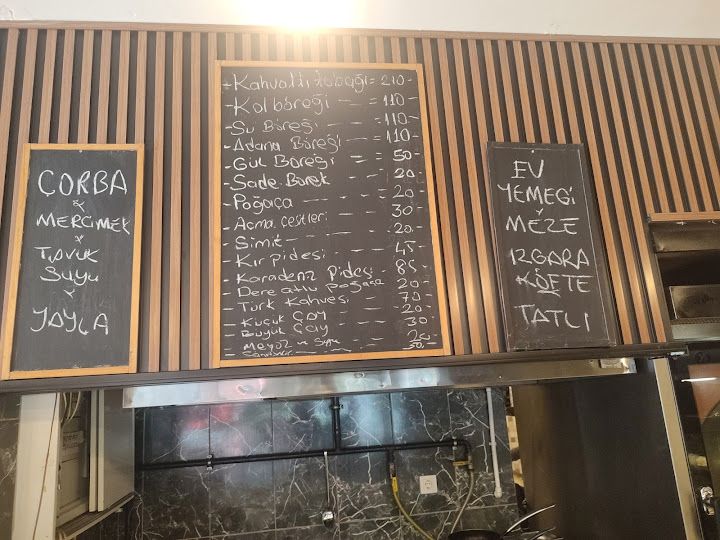 ÇORBA
&
MERCİMEK
TAVUK
SUYU
YAYLA
-Kahvaltı tabağı = 210-
-Kol böreği - - = 110-
-Su Böreği - - = 110-
-Adana Böreği - = 110-
-Gül Böreği - - 50-
-Sade Börek 20
-Poğaça - 20-
-Açma çeşitleri 30
-Simit - 20-
-Kır pidesi 45-
-Karadeniz Pidesi 85
-Dere otlu poğaça 20-
-Türk Kahvesi 70
-Küçük Çay 20
-Büyük Çay - 30
-Meyöz ve Suyu
EV
YEMEĞİ
MEZE
IZGARA
KÖFTE
TATLI